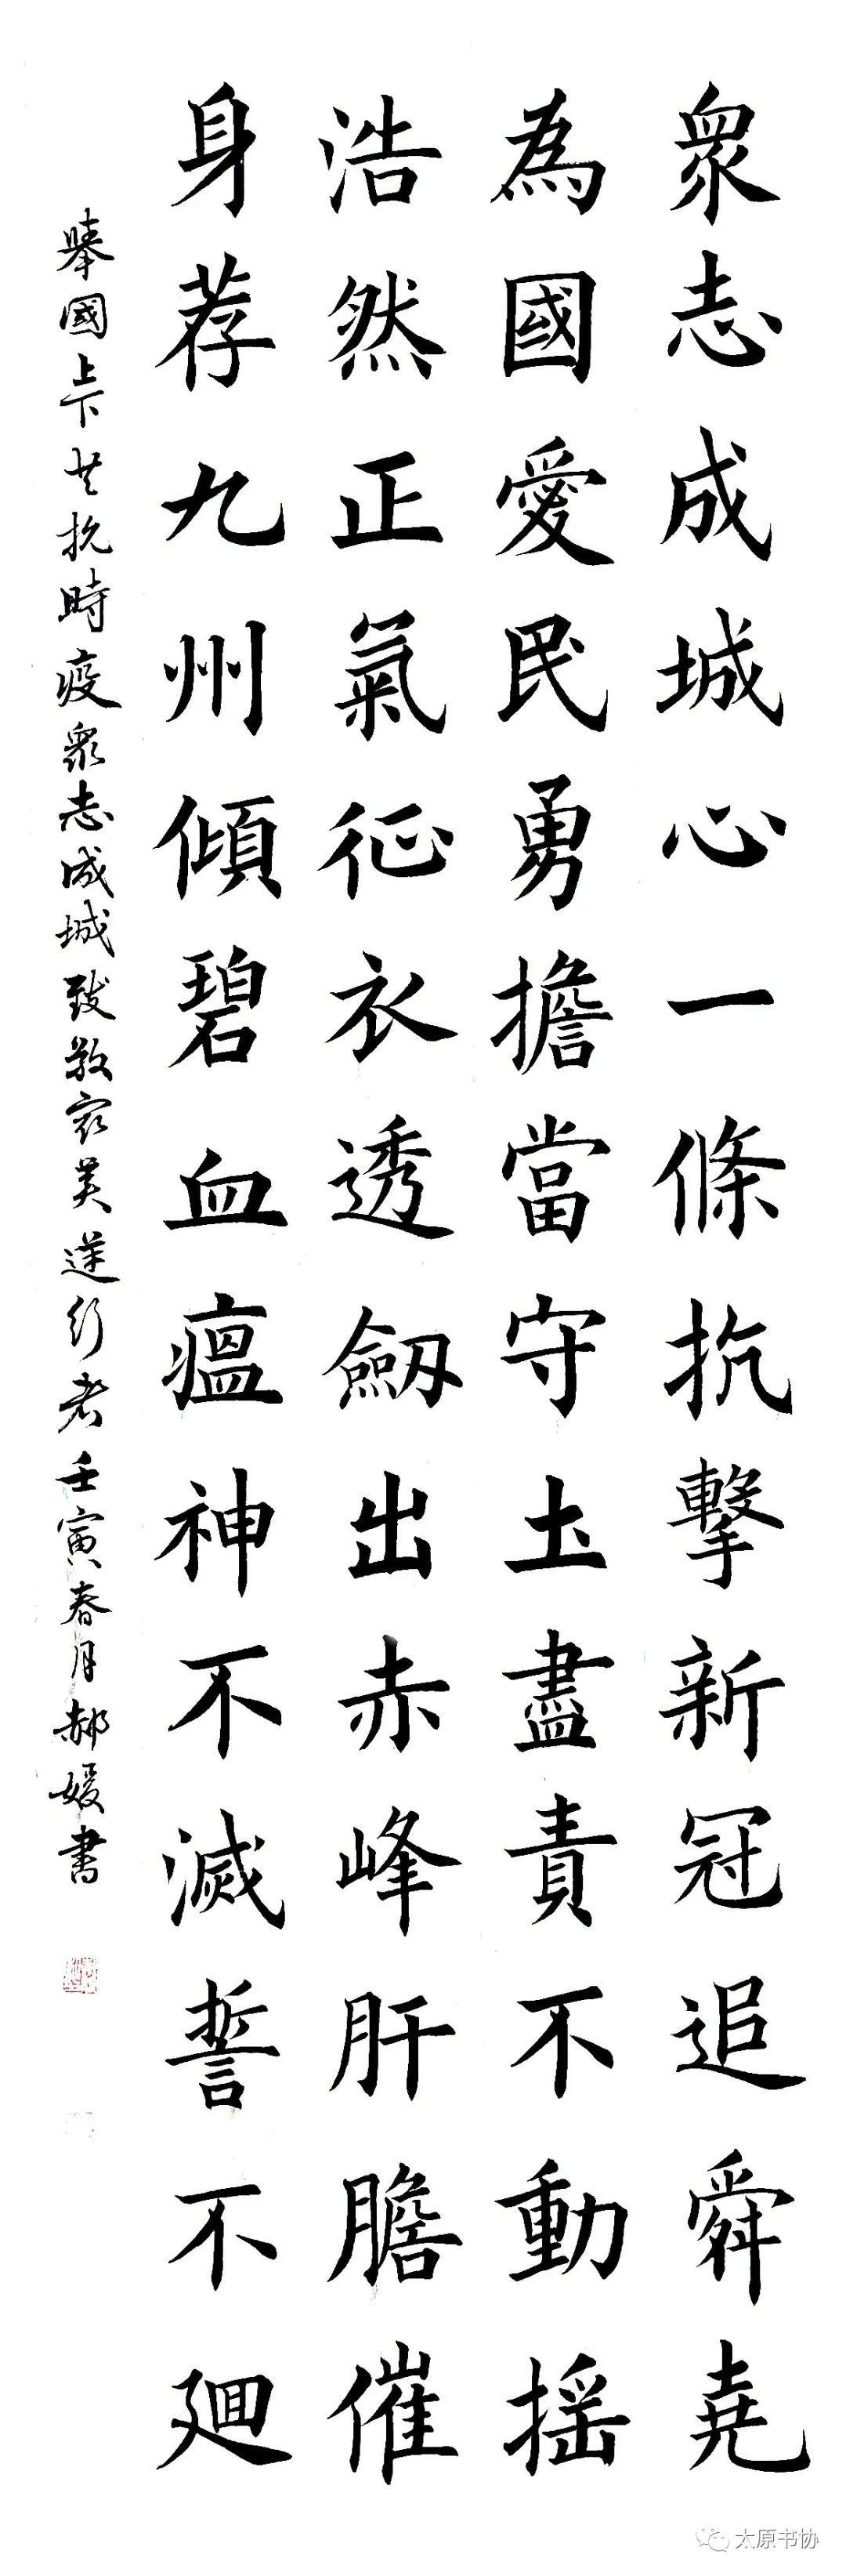 眾志成城心一條抗擊新冠追舜堯
為國愛民勇擔當守土盡責不動搖
浩然正氣征衣透劔出赤峰肝膽催
身荐九州傾碧血瘟神不滅誓不廻
舉國上下共抗時疫眾志成城致敬最美逆行者壬寅春月郝媛書
太原书协